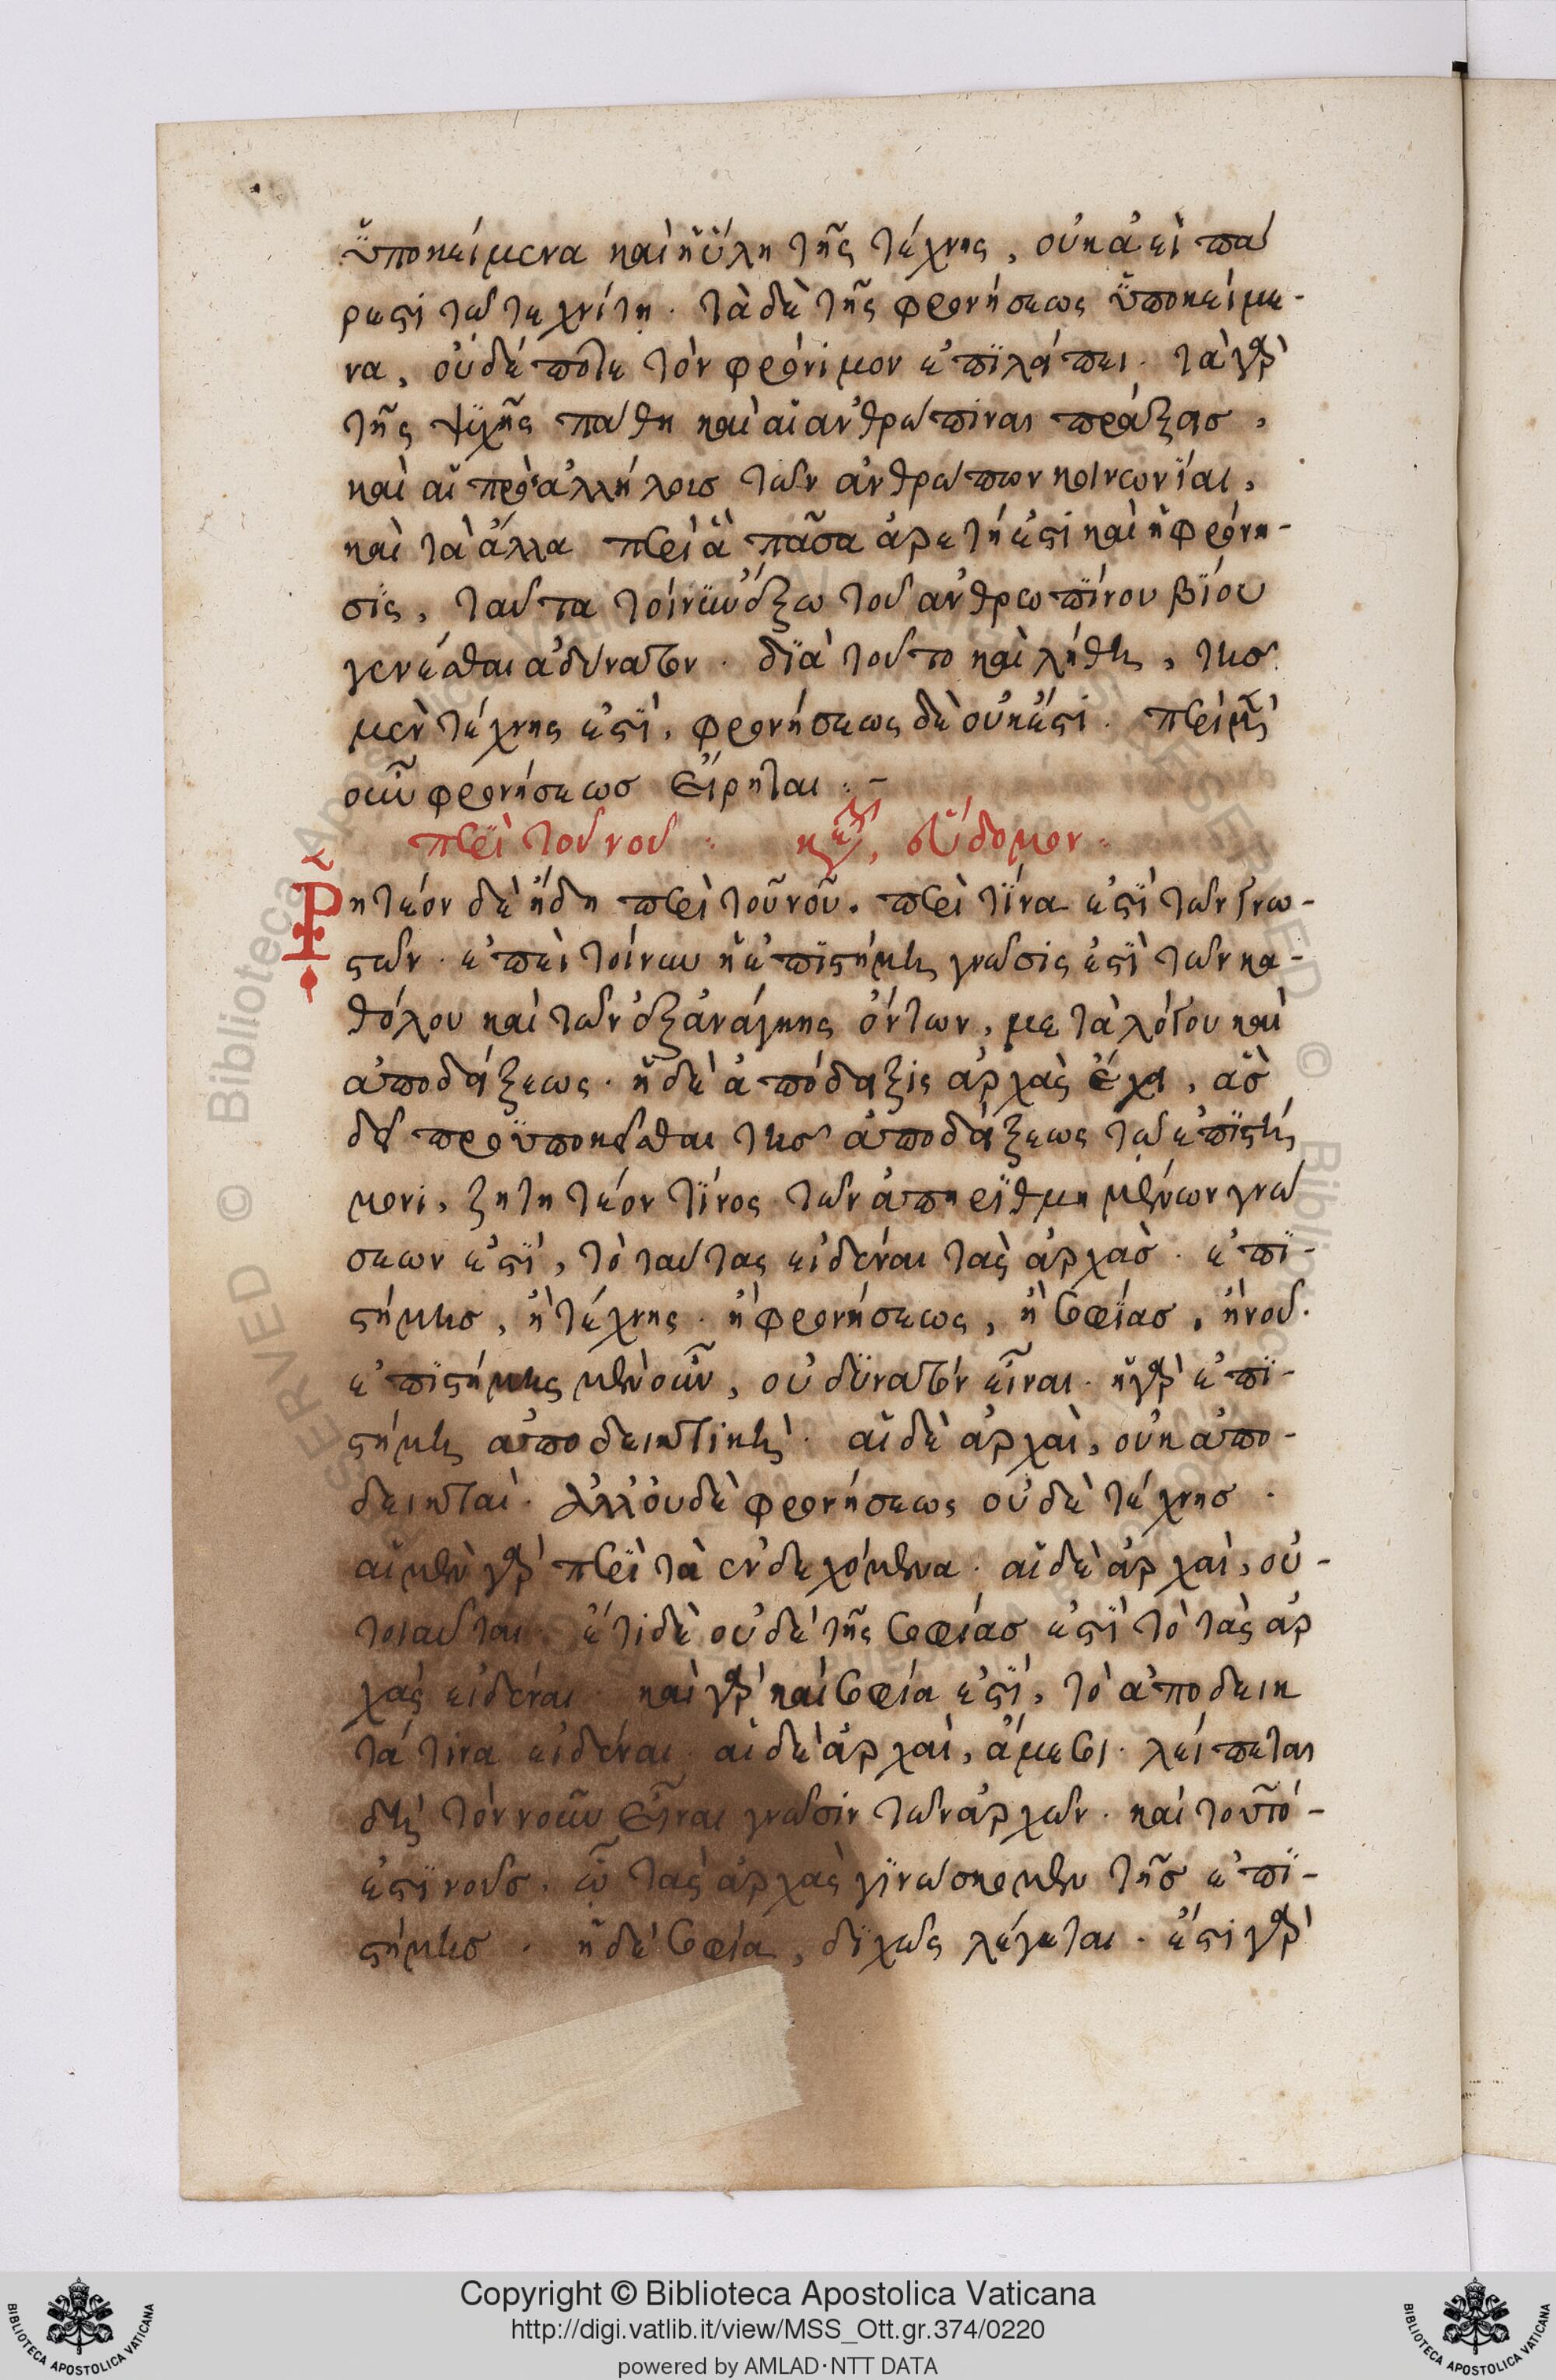 ὑποκείμενα καὶ ἡ ὕλη τῆς τέχνης, οὐκ ἀεὶ πά
ρεστι τῶ τεχνίτη. τὰ δὲ τῆς φρονήσεως ὑποκείμε-
να, οὐδέποτε τὸν φρόνιμον ἐπιλείπει. τὰ γὰρ
τῆς ψυχῆς πάθη καὶ αἱ ἀνθρώπιναι πράξεις,
καὶ αἱ πρὸς ἀλλήλους τῶν ἀνθρώπων κοινωνίαι,
καὶ τὰ ἄλλα περὶ ἃ πᾶσα ἀρετή ἐστι καὶ ἡ φρόνη-
σις, ταῦτα τοίνυν ἔξω τοῦ ἀνθρωπίνου βίου
γενέσθαι ἀδύνατον. διὰ τοῦτο καὶ λήθη, τῆς
μὲν τέχνης ἐστὶ, φρονήσεως δὲ οὐκ ἔστι. περὶ μὲν
οὖν φρονήσεως εἴρηται :-
περὶ τοῦ νοῦ : κεφάλαιον, ἕβδομον :
Ῥητέον δὲ ἤδη περὶ τοῦ νοῦ. περὶ τίνα ἐστὶ τῶν γνω-
στῶν. ἐπεὶ τοίνυν ἡ ἐπιστήμη γνῶσις ἐστὶ τῶν κα-
θόλου καὶ τῶν ἐξ ἀνάγκης ὄντων, μετὰ λόγου καὶ
ἀποδείξεως. ἡ δὲ ἀπόδειξις ἀρχὰς ἔχει, ἃς
δεῖ προϋποκεῖσθαι τῆς ἀποδείξεως τῶ ἐπιστή
μονι, ζητητέον τίνος τῶν ἀπηριθμημένων γνώ
σεων ἐστὶ, τὸ ταύτας εἰδέναι τὰς ἀρχάς. ἐπι-
στήμης, ἢ τέχνης. ἢ φρονήσεως, ἢ σοφίας, ἢ νοῦ.
ἐπιστήμης μὲν οὖν, οὐ δυνατὸν εἶναι. ἡ γὰρ ἐπι-
στήμη ἀποδεικτικὴ. αἱ δὲ ἀρχαὶ, οὐκ ἀπο-
δεικταὶ. ἀλλ' οὐδὲ φρονήσεως οὐδὲ τέχνης.
αἱ μὲν γὰρ περὶ τὰ ἐνδεχόμενα. αἱ δὲ ἀρχαὶ, οὐ-
τοιαῦται. ἔτι δὲ οὐδὲ τῆς σοφίας ἐστὶ τὸ τὰς ἀρ
χὰς εἰδέναι. καὶ γὰρ καὶ σοφία ἐστὶ, τὸ ἀποδεικ
τά τινα εἰδέναι. αἱ δὲ ἀρχαὶ, ἄμεσοι. λείπεται
δὴ τὸν νοῦν εἶναι γνῶσιν τῶν ἀρχῶν. καὶ τοῦτό-
ἐστι νοῦς. ᾧ τὰς ἀρχὰς γινώσκομεν τῆς ἐπι-
στήμης. ἡ δὲ σοφία, διχῶς λέγεται. ἔστι γὰρ
Copyright © Biblioteca Apostolica Vaticana
http://digi.vatlib.it/view/MSS_Ott.gr.374/0220
powered by AMLAD·NTT DATA